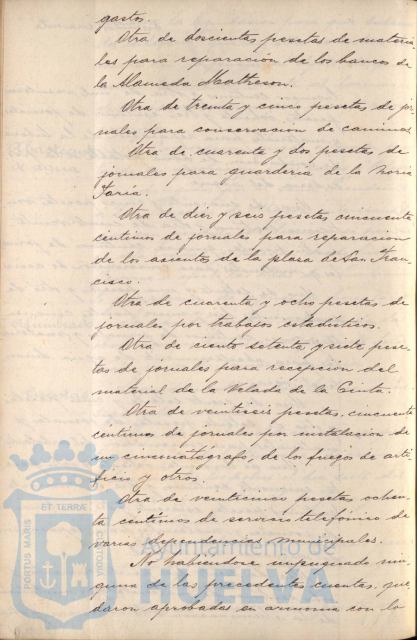 gastos.
Otra de doscientas pesetas de materia-
les para reparación de los bancos de
la Alameda Matheson.
Otra de treinta y cinco pesetas de jor-
nales para conservacion de caminos
Otra de cuarenta y dos pesetas de
jornales para guarderia de la noria
Faria.
Otra de diez y seis pesetas cincuenta
centimos de jornales para reparacion
de los asientos de la plasa de San Fran-
cisco.
Otra de cuarenta y ocho pesetas de
jornales por trabajos estadisticos.
Otra de ciento setenta y siete pese-
tas de jornales para recepción del
material de la Velada de la Cinta.
Otra de veintiseis pesetas, cincuenta
centimos de jornales por instalacion de
un cinematógrafo, de los fuegos de arti-
ficio y otros.
Otra de veinticinco pesetas ochen-
ta centimos de servicio telefónico de
varias dependencias municipales.
No habiendose impugnado nin-
guna de las precedentes cuentas, que-
daron aprobadas en armonia con lo
PORTUS MARIS
ET TERRÆ
CUSTODIA
Ayuntamiento de
HUELVA